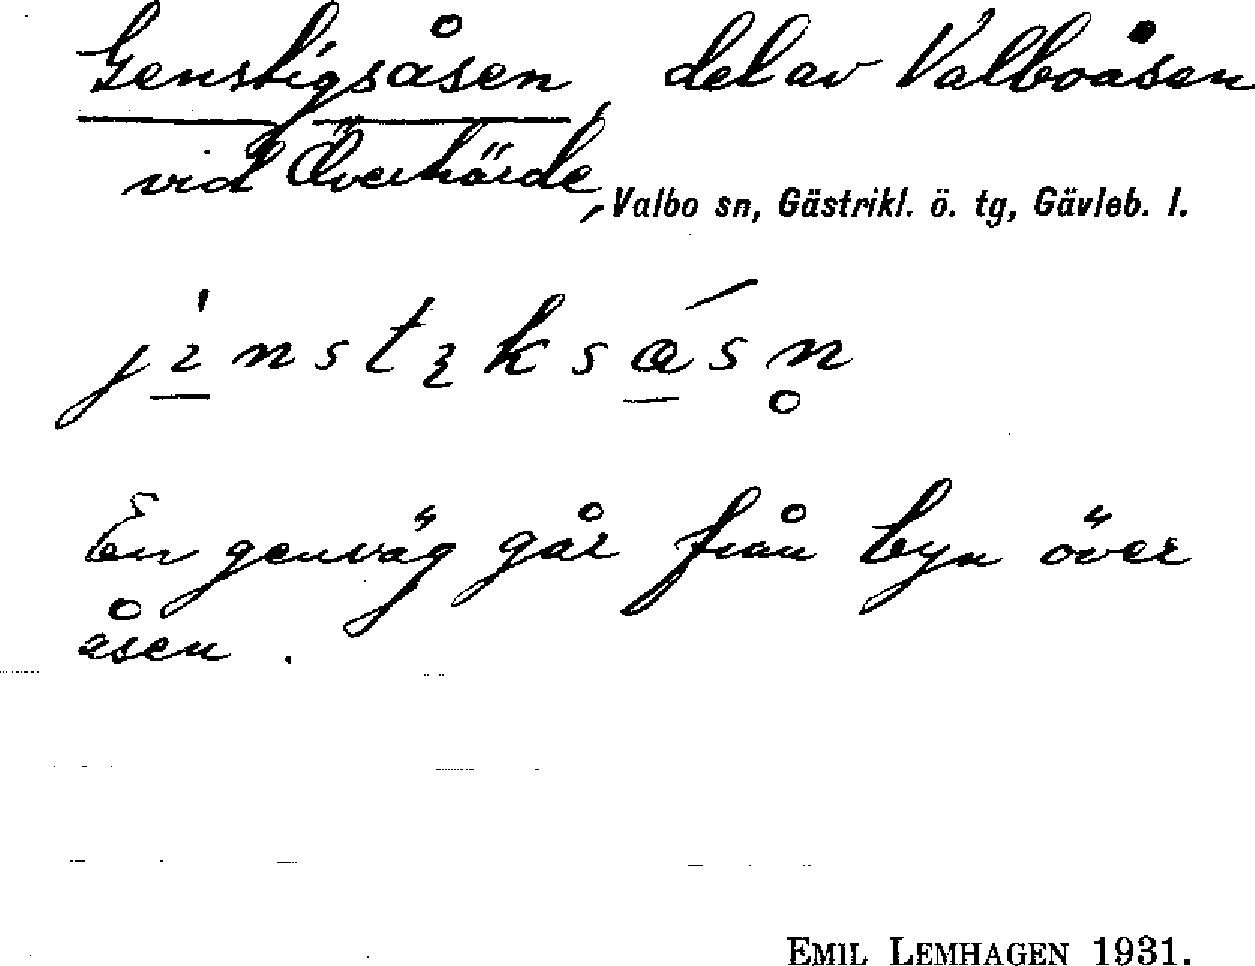 Genstigsåsen, del av Valboåsen
vid Överhärde, Valbo sn, Gästrikl. ö. tg, Gävleb. l.
jinstɩksåsn̥
En genväg går från byn över
åsen.
EMIL LEMHAGEN 1931.